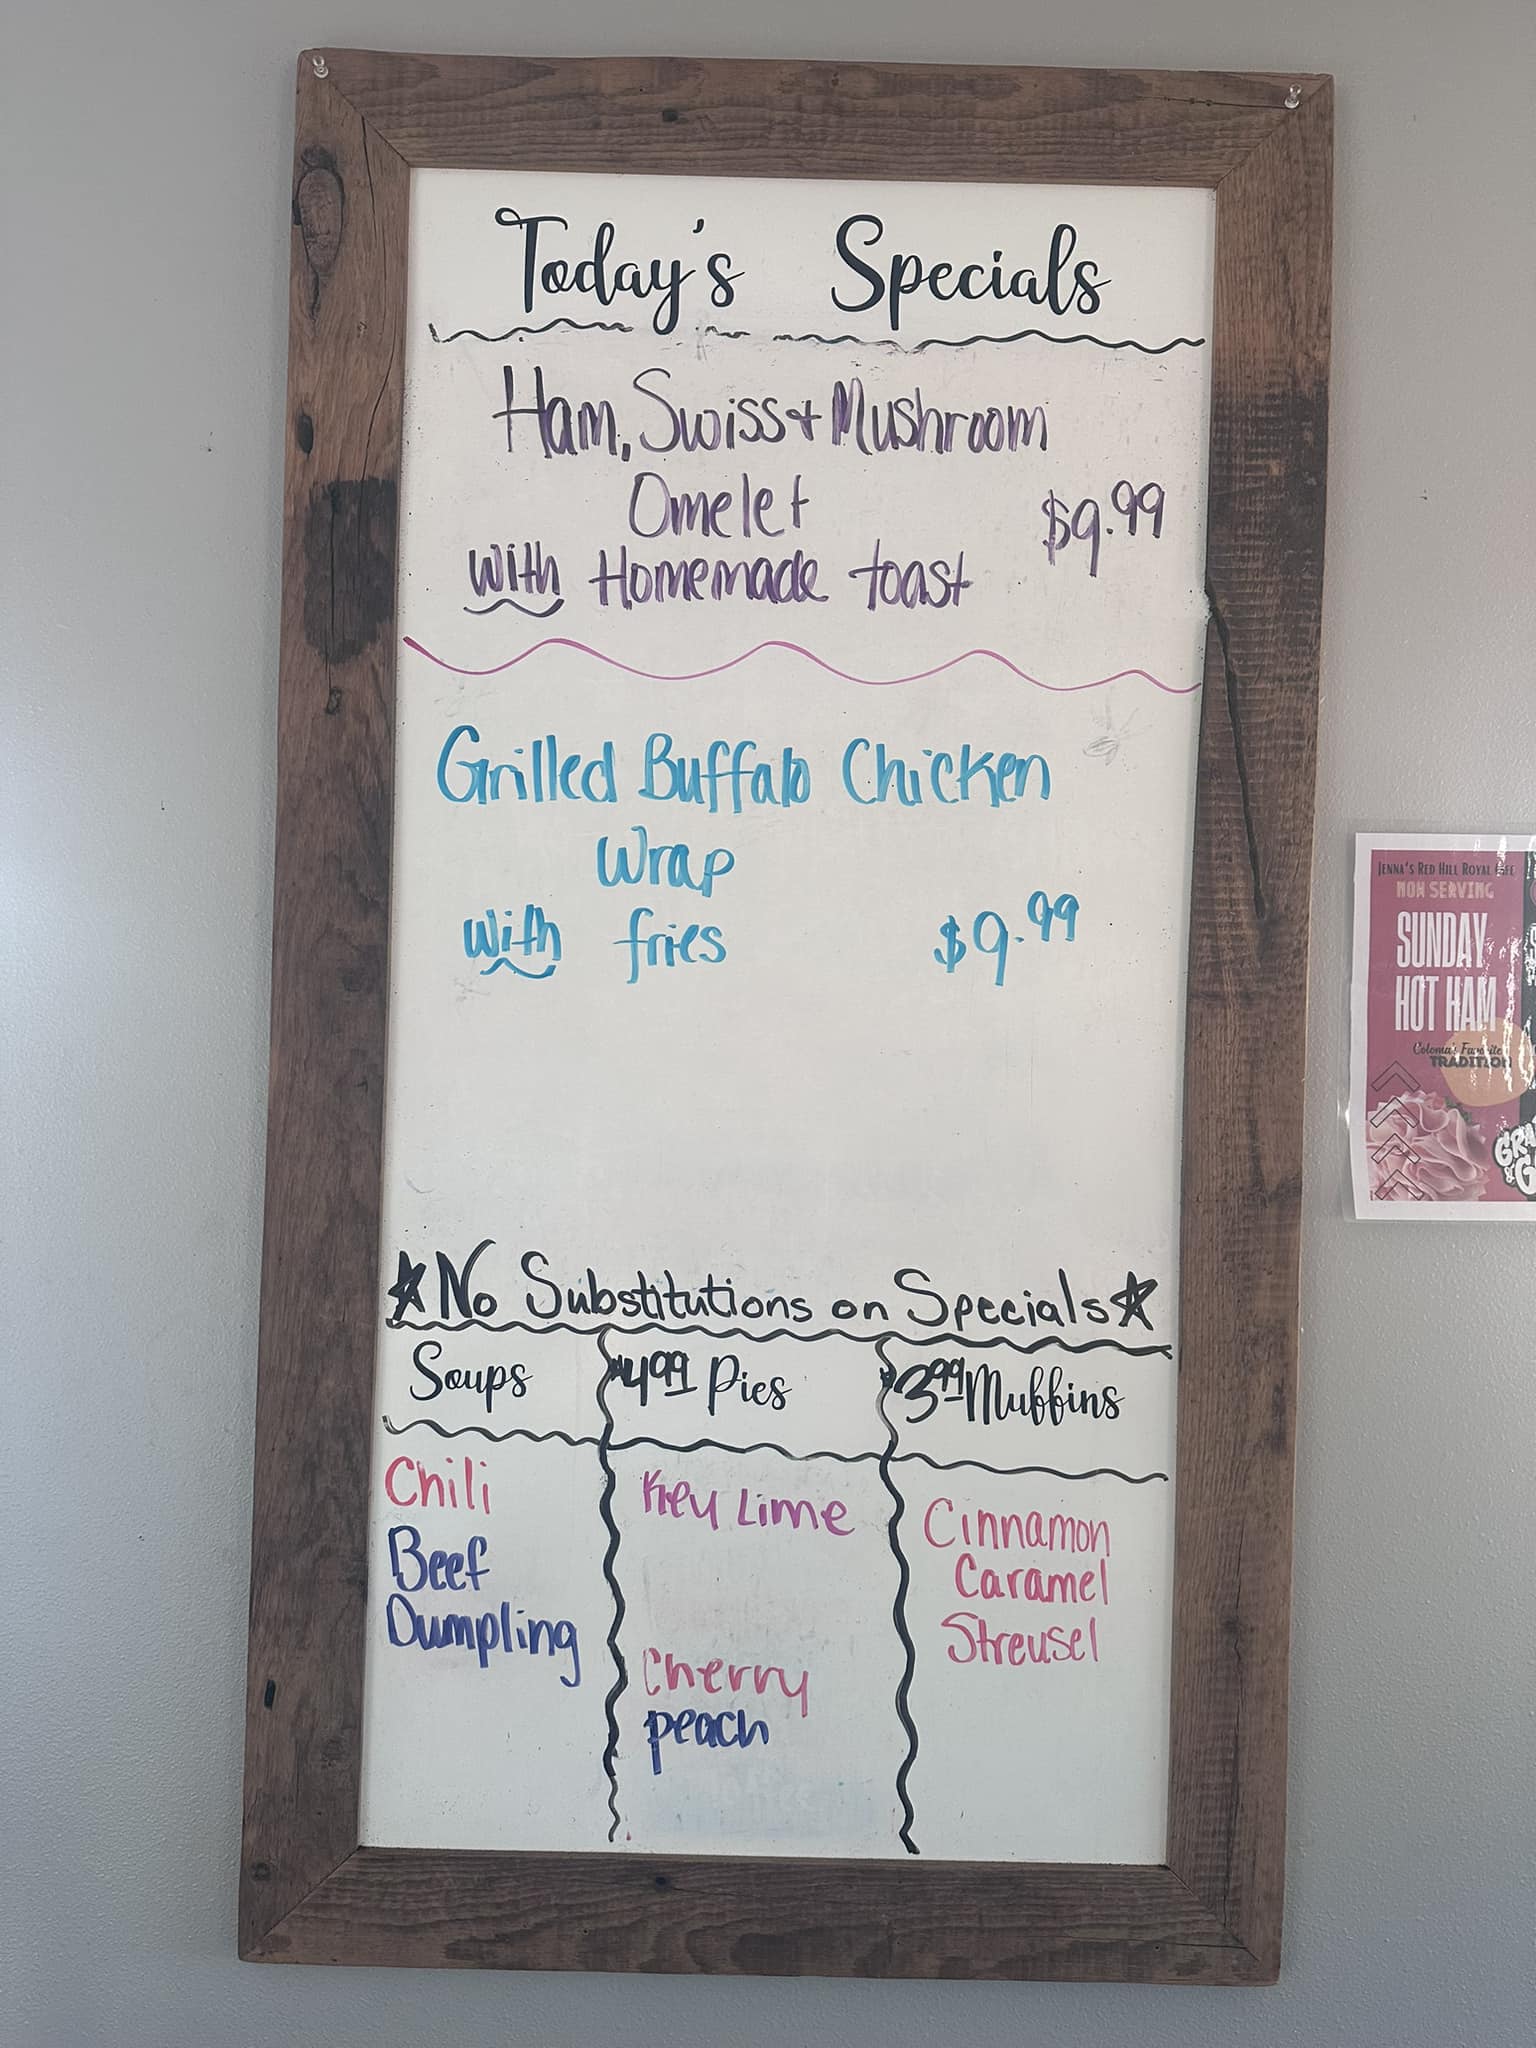 Today's Specials
Ham, Swiss + Mushroom
Omelet
$9.99
with Homemade toast
Grilled Buffalo Chicken
Wrap
with fries $9.99
No Substitutions on Specials
Soups
$4.99 Pies
$3.99 Muffins
Chili
Beef
Dumpling
Key Lime
Cherry
peach
Cinnamon
Caramel
Streusel
JENNA'S RED HILL ROYAL
NOW SERVING
SUNDAY
HOT HAM
Coloma's Favorite
TRADITION